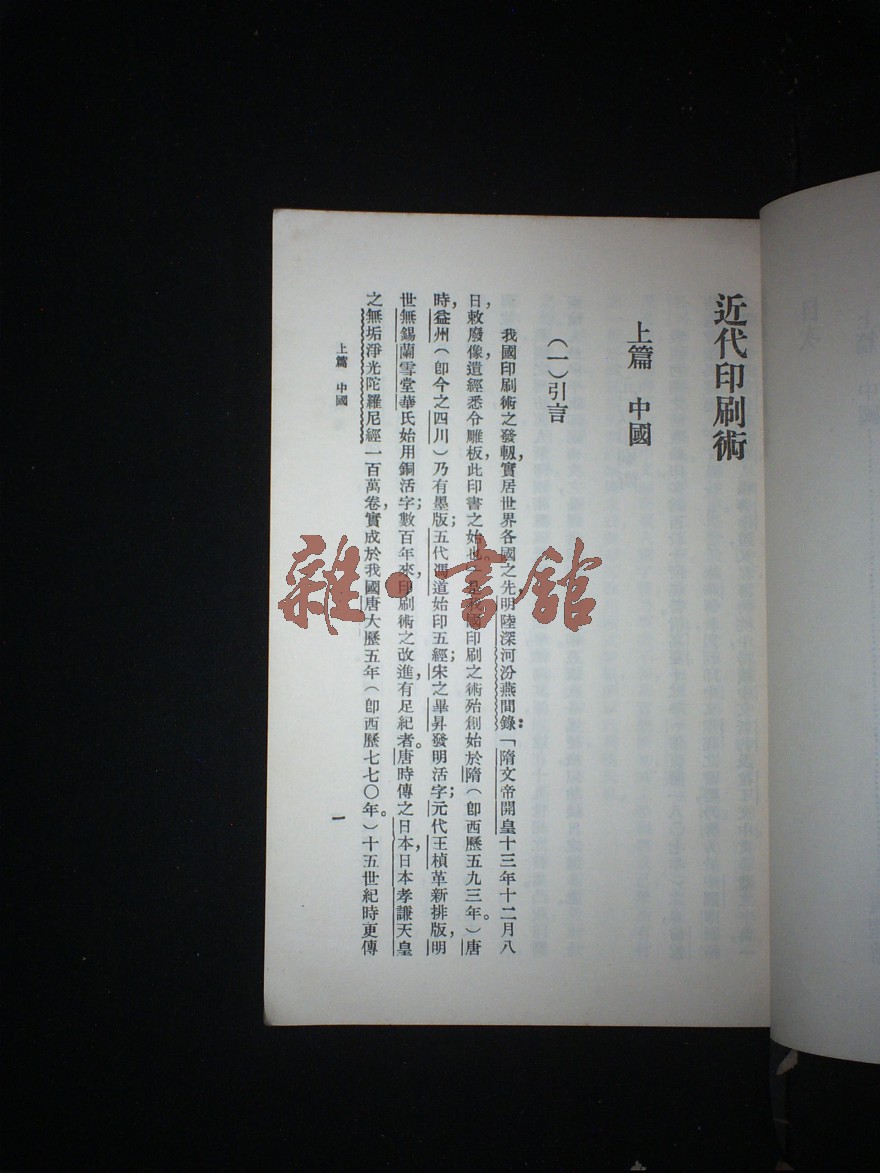 近代印刷術
上篇 中國
（一）引言
我國印刷術之發軔，實居世界各國之先，明陸深河汾燕閒錄：「隋文帝開皇十三年十二月八
日，敕廢像遺經悉令雕板，此印書之始也」是我國印刷之術殆創始於隋（卽西歷五九三年。）唐
時，益州（卽今之四川）乃有墨版；五代馮道始印五經；宋之畢昇發明活字；元代王楨革新排版，明
世無錫蘭雪堂華氏始用銅活字；數百年來，印刷術之改進，有足紀者。唐時傳之日本，日本孝謙天皇
之無垢淨光陀羅尼經一百萬卷，實成於我國唐大歷五年（卽西歷七七〇年。）十五世紀時更傳
上篇 中國
一
雜·書館